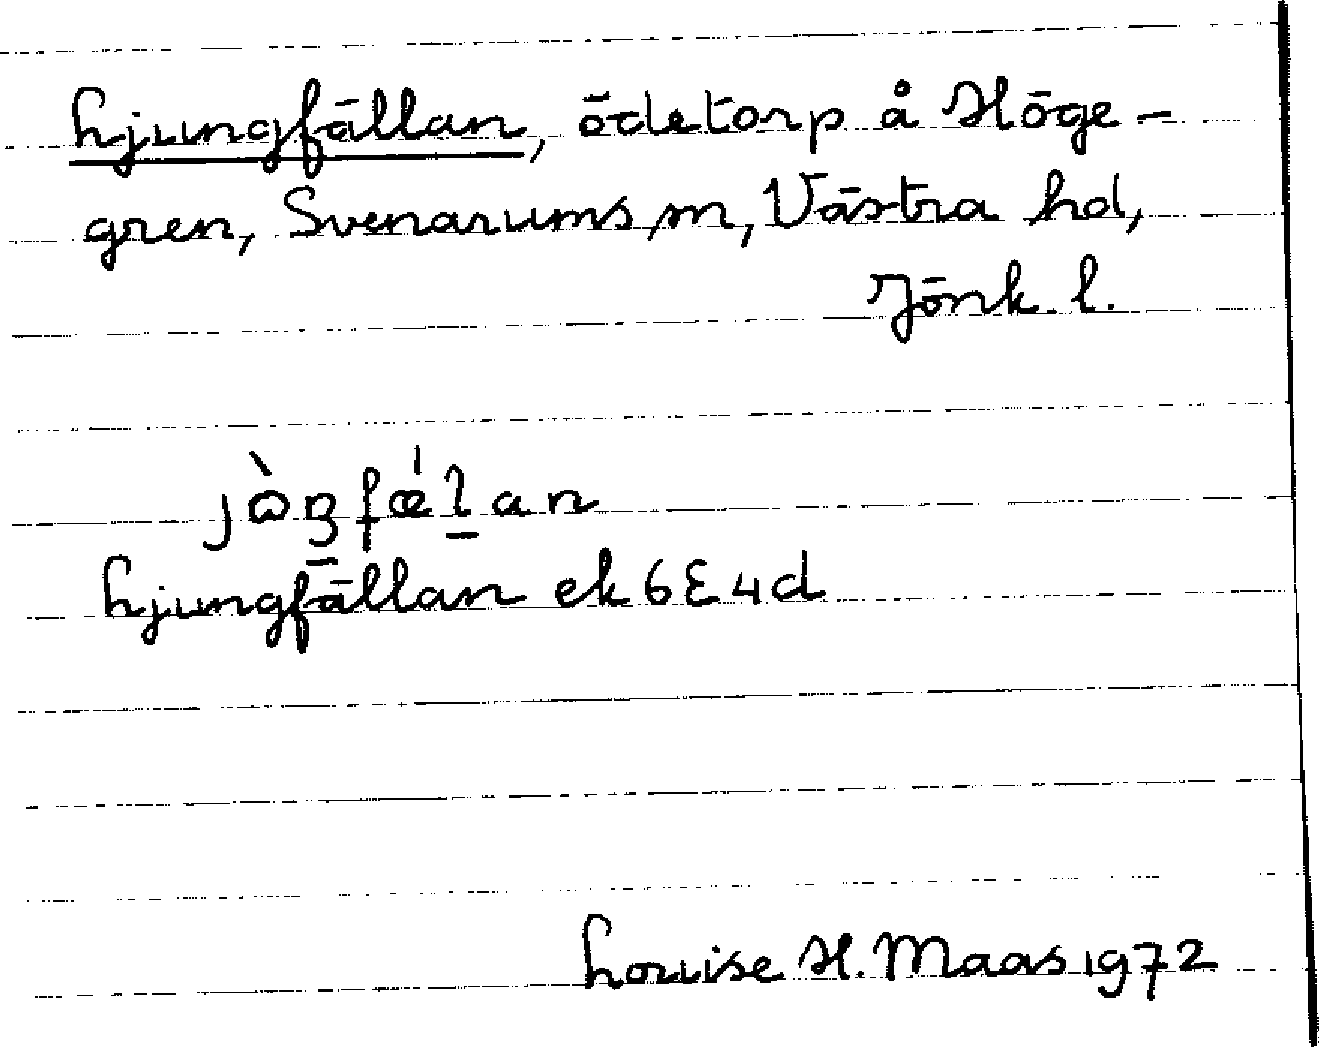 Ljungfällan, ödetorp å Höge-
gren, Svenarums sn, Västra hd,
Jönk. l.
Ljungfällan ek 6E4d
Louise H. Maas 1972